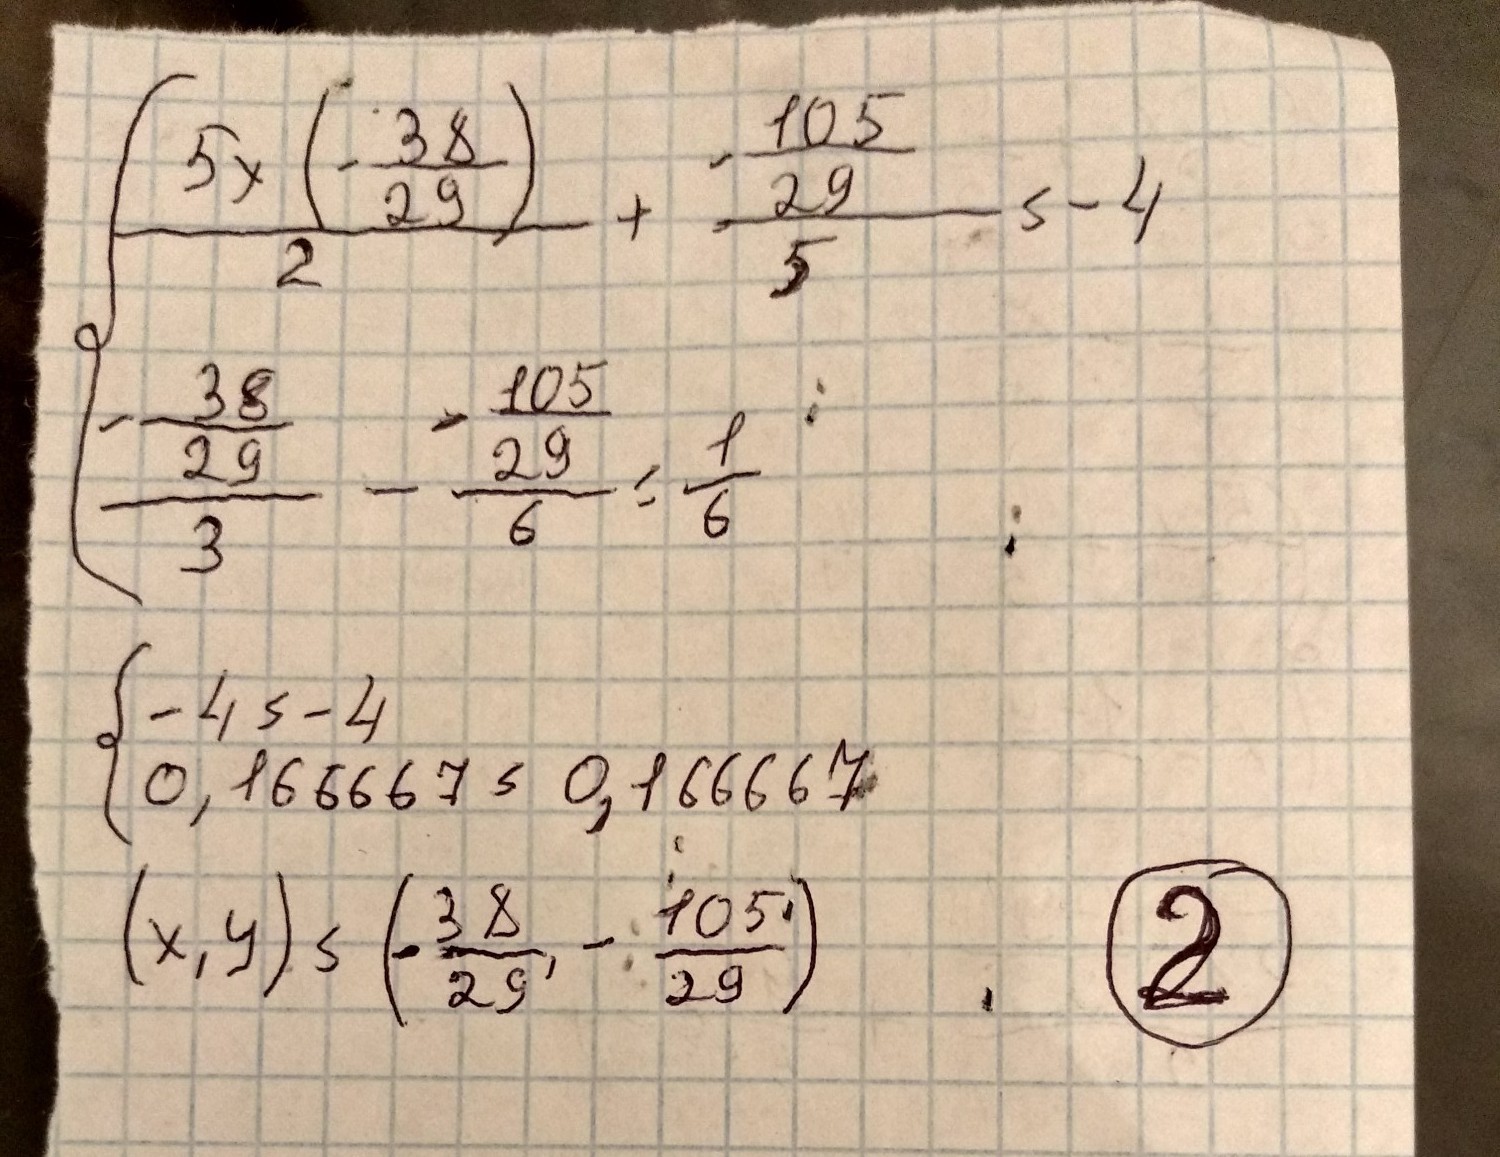 5x(-38/29)/2 + -105/29/5 = -4
-38/29/3 - -105/29/6 = 1/6
-4 = -4
0,166667 = 0,166667
(x, y) = (-38/29, -105/29)
2